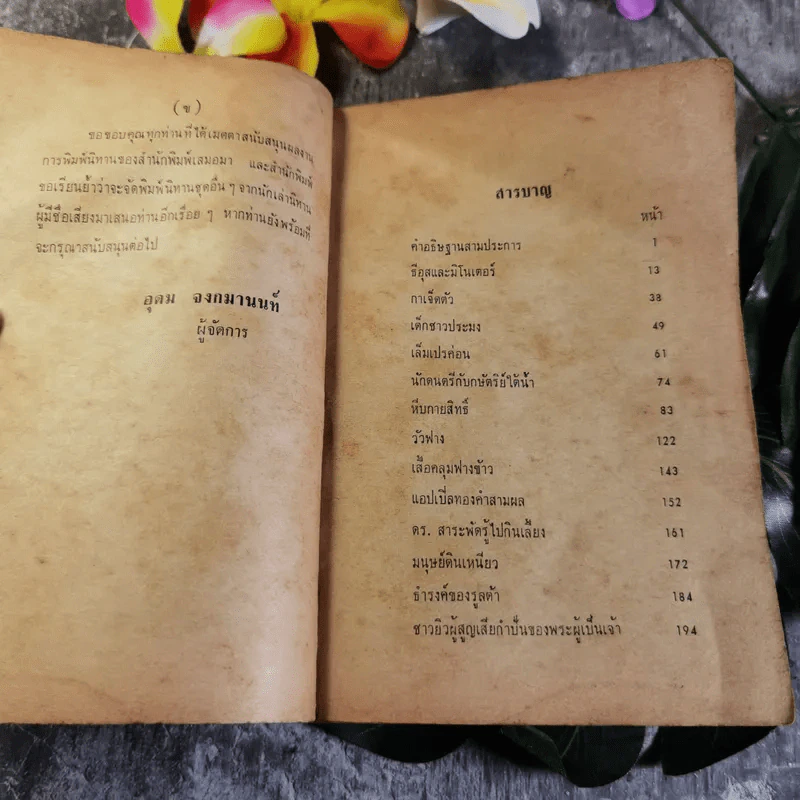 (ข)
ขอขอบคุณทุกท่านที่ได้เมตตาสนับสนุนผลงาน
การพิมพ์นิทานของสำนักพิมพ์เสมอมา และสำนักพิมพ์
ขอเรียนย้ำว่าจะจัดพิมพ์นิทานชุดอื่น ๆ จากนักเล่านิทาน
ผู้มีชื่อเสียงมาเสนอท่านอีกเรื่อย ๆ หากท่านยังพร้อมที่
จะกรุณาสนับสนุนต่อไป
อุดม จงกมานนท์
ผู้จัดการ
สารบาญ
หน้า
คำอธิษฐานสามประการ 1
ธีอุสและมิโนเตอร์ 13
กาเจ็ดตัว 38
เด็กชาวประมง 49
เล็มเปรค่อน 61
นักดนตรีกับกษัตริย์ใต้น้ำ 74
หีบกายสิทธิ์ 83
วัวฟาง 122
เสื้อคลุมฟางข้าว 143
แอปเปิ่ลทองคำสามผล 152
ดร. สาระพัดรู้ไปกินเลี้ยง 161
มนุษย์ดินเหนียว 172
ธำรงค์ของรูสต้า 184
ชาวยิวผู้สูญเสียกำปั่นของพระผู้เป็นเจ้า 194